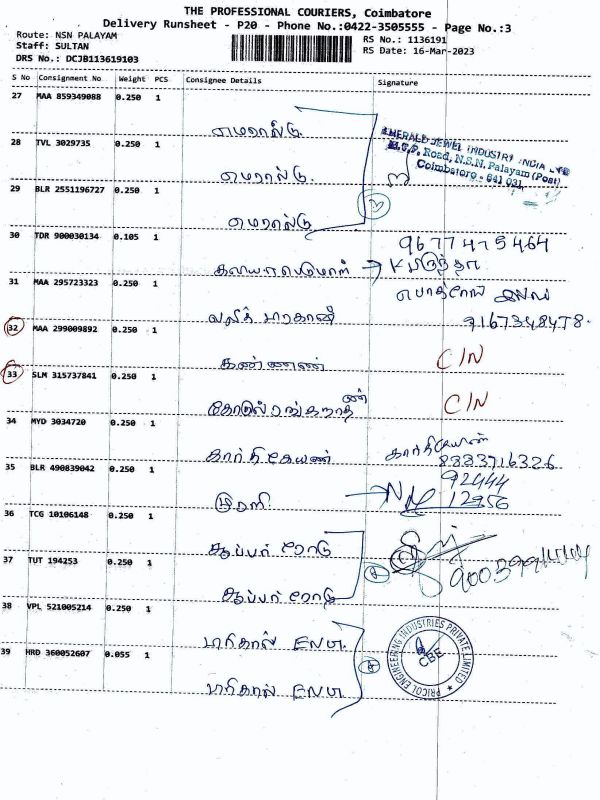 THE PROFESSIONAL COURIERS, Coimbatore
Delivery Runsheet - P20 - Phone No.:0422-3505555 - Page No.:3
Route: NSN PALAYAM
RS No.: 1136191
Staff: SULTAN
RS Date: 16-Mar-2023
DRS No.: DCJB113619103
S No Consignment No Weight PCS Consignee Details Signature
27 MAA 859349088 0.250 1
எமரால்டு
EMERALD JEWEL INDUSTRY INDIA LTD
M.G.P. Road, N.S.N. Palayam (Post)
Coimbatore - 641 031.
28 TVL 3029735 0.250 1
எமரால்டு.
29 BLR 2551196727 0.250 1
எமரால்டு
3
30 TDR 900030134 0.105 1
9677475464
31 MAA 295723323 0.250 1
9167348478.
32 MAA 299009892 0.250 1
கண்ணன்
C/N
33 SLM 315737841 0.250 1
C/N
34 MYD 3034720 0.250 1
கார்திகேயன்
கார்திகேயன்
8883716326
35 BLR 490839042 0.250 1
முரளி
92444
12956
36 TCG 10106148 0.250 1
சூப்பர் ரோடு
37 TUT 194253 0.250 1
சூப்பர் ரோடு
38 VPL 521005214 0.250 1
39 HRD 360052607 0.055 1
PRICOL ENGINEERING INDUSTRIES PRIVATE LIMITED
CBE